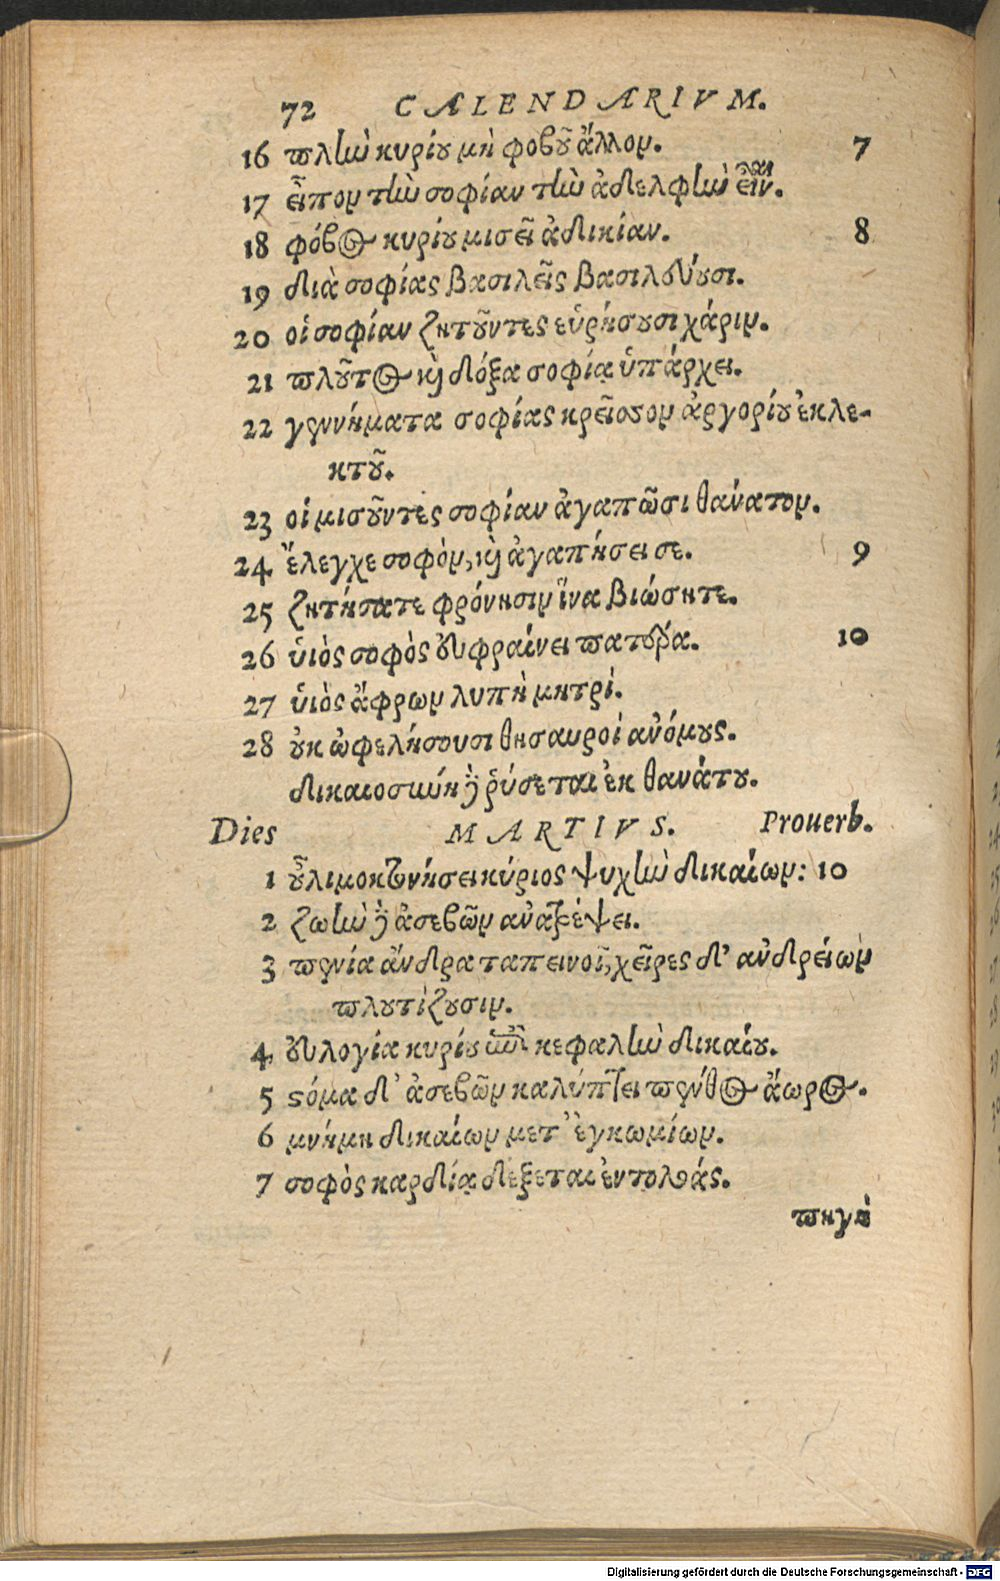 72 CALENDARIVM.
16 πλὴν κυρίου μὴ φοβοῦ ἄλλον. 7
17 εἶπον τὴν σοφίαν τὴν ἀδελφὴν εἶναι.
18 φόβος κυρίου μισεῖ ἀδικίαν. 8
19 διὰ σοφίας βασιλεῖς βασιλεύουσι.
20 οἱ σοφίαν ζητοῦντες εὑρήσουσι χάριν.
21 πλοῦτος καὶ δόξα σοφίᾳ ὑπάρχει.
22 γεννήματα σοφίας κρεῖσσον ἀργορίου ἐκλε-
κτοῦ.
23 οἱ μισοῦντες σοφίαν ἀγαπῶσι θάνατον.
24 ἔλεγχε σοφὸν, καὶ ἀγαπήσει σε. 9
25 ζητήσατε φρόνησιν ἵνα βιώσητε.
26 ὑιὸς σοφὸς εὐφραίνει πατέρα. 10
27 ὑιὸς ἄφρων λυπὴ μητρί.
28 οὐκ ὠφελήσουσι θησαυροὶ ἀνόμους.
δικαιοσύνη δὲ ῥύσεται ἐκ θανάτου.
Dies MARTIVS. Prouerb.
1 οὐ λιμοκτονήσει κύριος ψυχὴν δικαίων: 10
2 ζωὴν δὲ ἀσεβῶν ἀνατρέψει.
3 πενία ἄνδρα ταπεινοῖ, χεῖρες δ' ἀνδρείων
πλουτίζουσιν.
4 εὐλογία κυρίου ἐπὶ κεφαλὴν δικαίου.
5 στόμα δ' ἀσεβῶν καλύπτει πένθος ἄωρος.
6 μνήμη δικαίων μετ' ἐγκωμίων.
7 σοφὸς καρδίᾳ δέξεται ἐντολάς.
πηγὴ
Digitalisierung gefördert durch die Deutsche Forschungsgemeinschaft - DFG